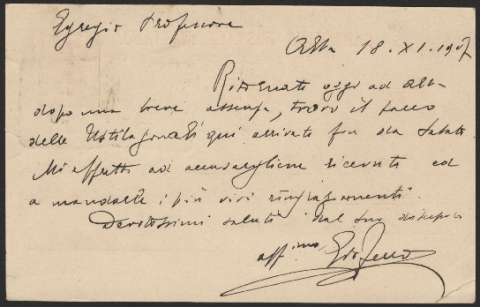 Egregio Professore
Alba 18.XI.1907
Ritornato oggi ad Alba
dopo una breve assenza, trovo il pacco
delle qui arrivato fin da Sabato
Mi affretto ad accusargliene ricevuta ed
a mandarle i più vivi ringraziamenti.
Devotissimi saluti dal suo discepolo
aff.mo